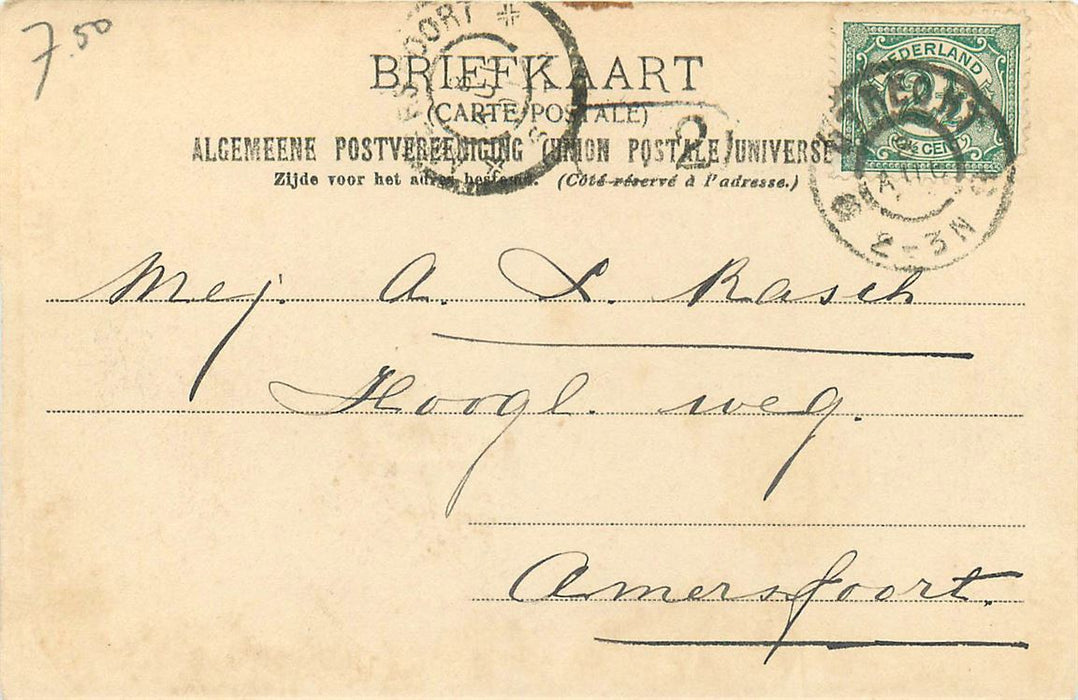 7.50
BRIEFKAART
(CARTE POSTALE)
ALGEMEENE POSTVEREENIGING (UNION POSTALE UNIVERSE
Zijde voor het adres bestemd. (Côté réservé à l'adresse.)
NEDERLAND
2½
2½ CENT
2-3N
2
Mej. A. L. Rasch
Hoogl. weg.
Amersfoort.